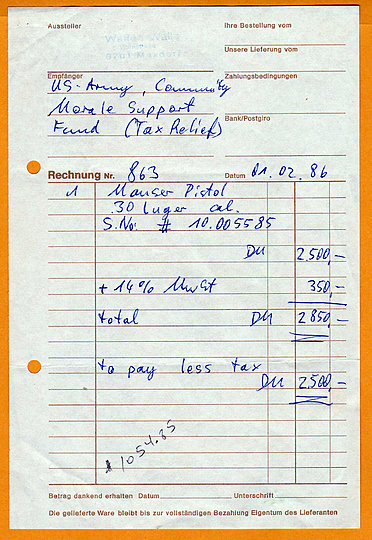 Aussteller
Ihre Bestellung vom
Unsere Lieferung vom
Empfänger
Zahlungsbedingungen
US-Army, Community
Morale Support
Bank/Postgiro
Fund (Tax Relief)
Rechnung Nr. 863 Datum 01.02.86
1 Mauser Pistol
.30 luger cal.
S.No: # 10.005585
DM 2.500,-
+ 14% MwSt 350,-
total DM 2 850,-
to pay less tax
DM 2.500,-
$ 1054.85
Betrag dankend erhalten Datum Unterschrift
Die gelieferte Ware bleibt bis zur vollständigen Bezahlung Eigentum des Lieferanten